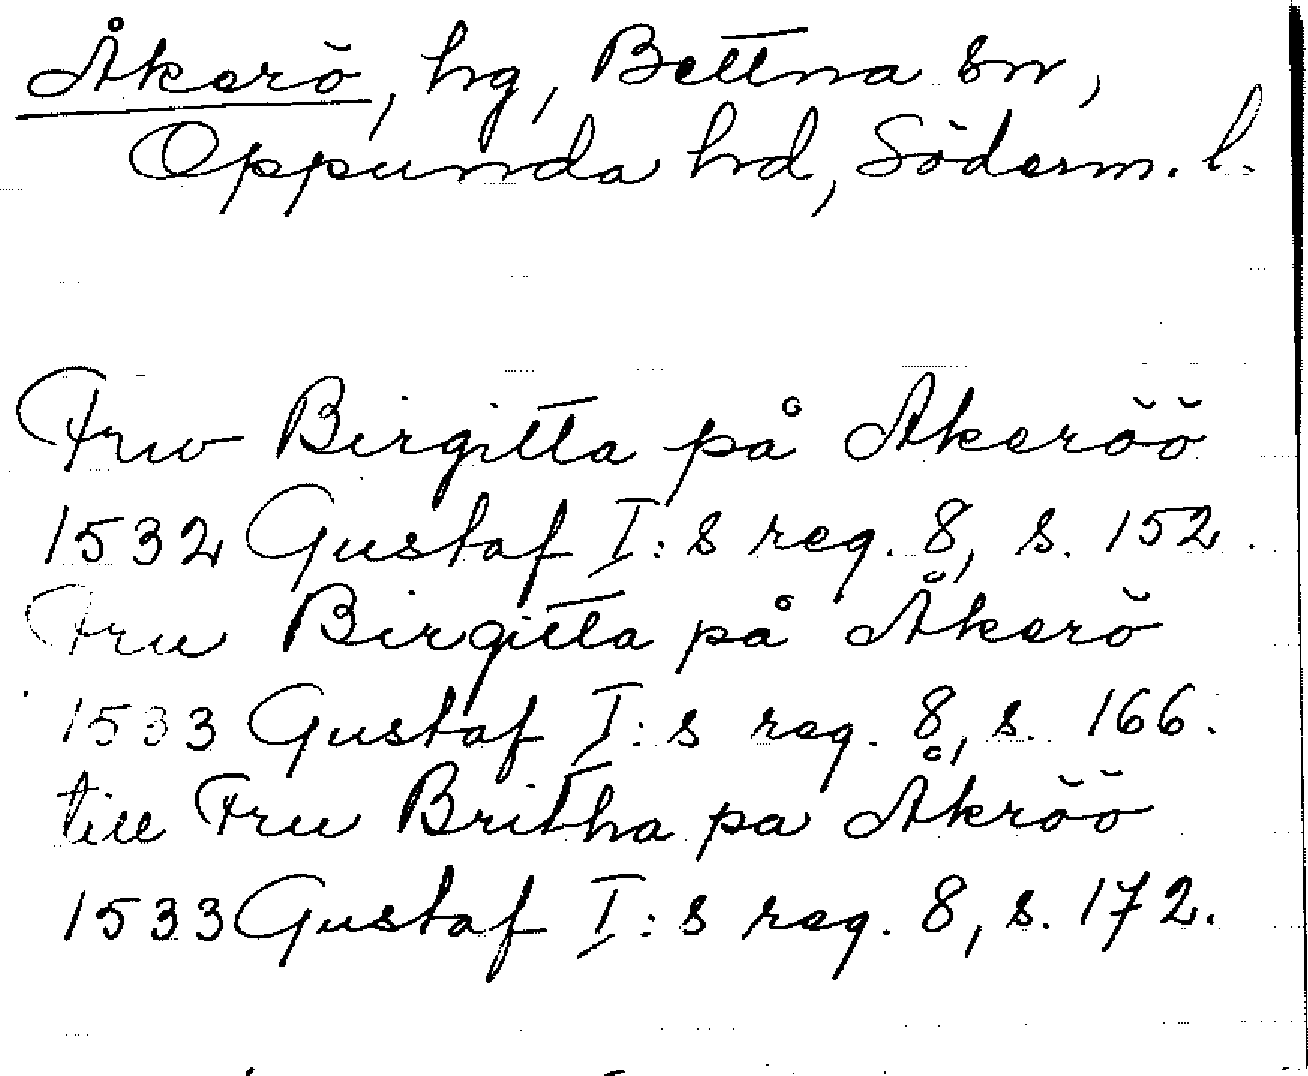 Åkerö, hg, Bettna sn,
Oppunda hd, Söderm. l.
Frw Birgitta på Akeröö
1532 Gustaf I:s reg. 8, s. 152.
Fru Birgitta på Åkerö
1533 Gustaf I:s reg. 8, s. 166.
till Fru Britha pa Åkröö
1533 Gustaf I:s reg. 8, s. 172.